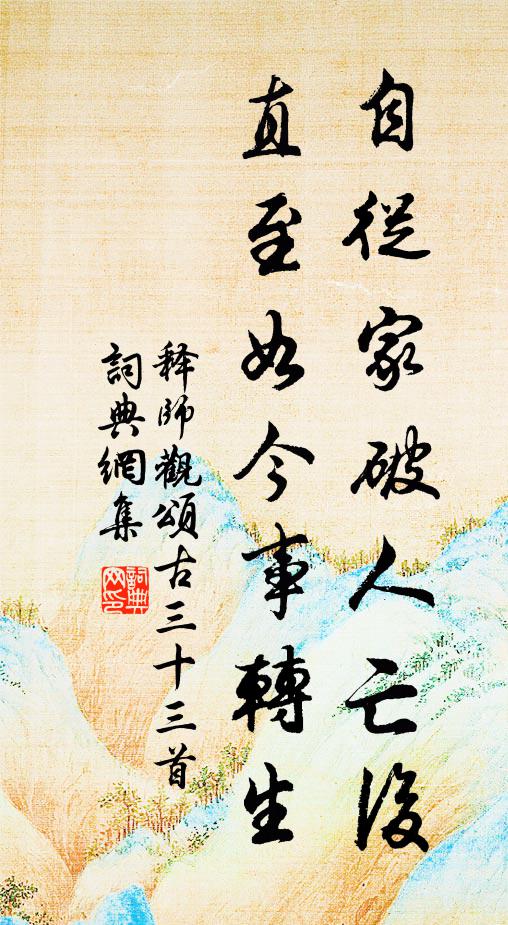 自從家破人亡後
直至如今事轉生
释師觀頌古三十三首
詞典網集
詞典網印